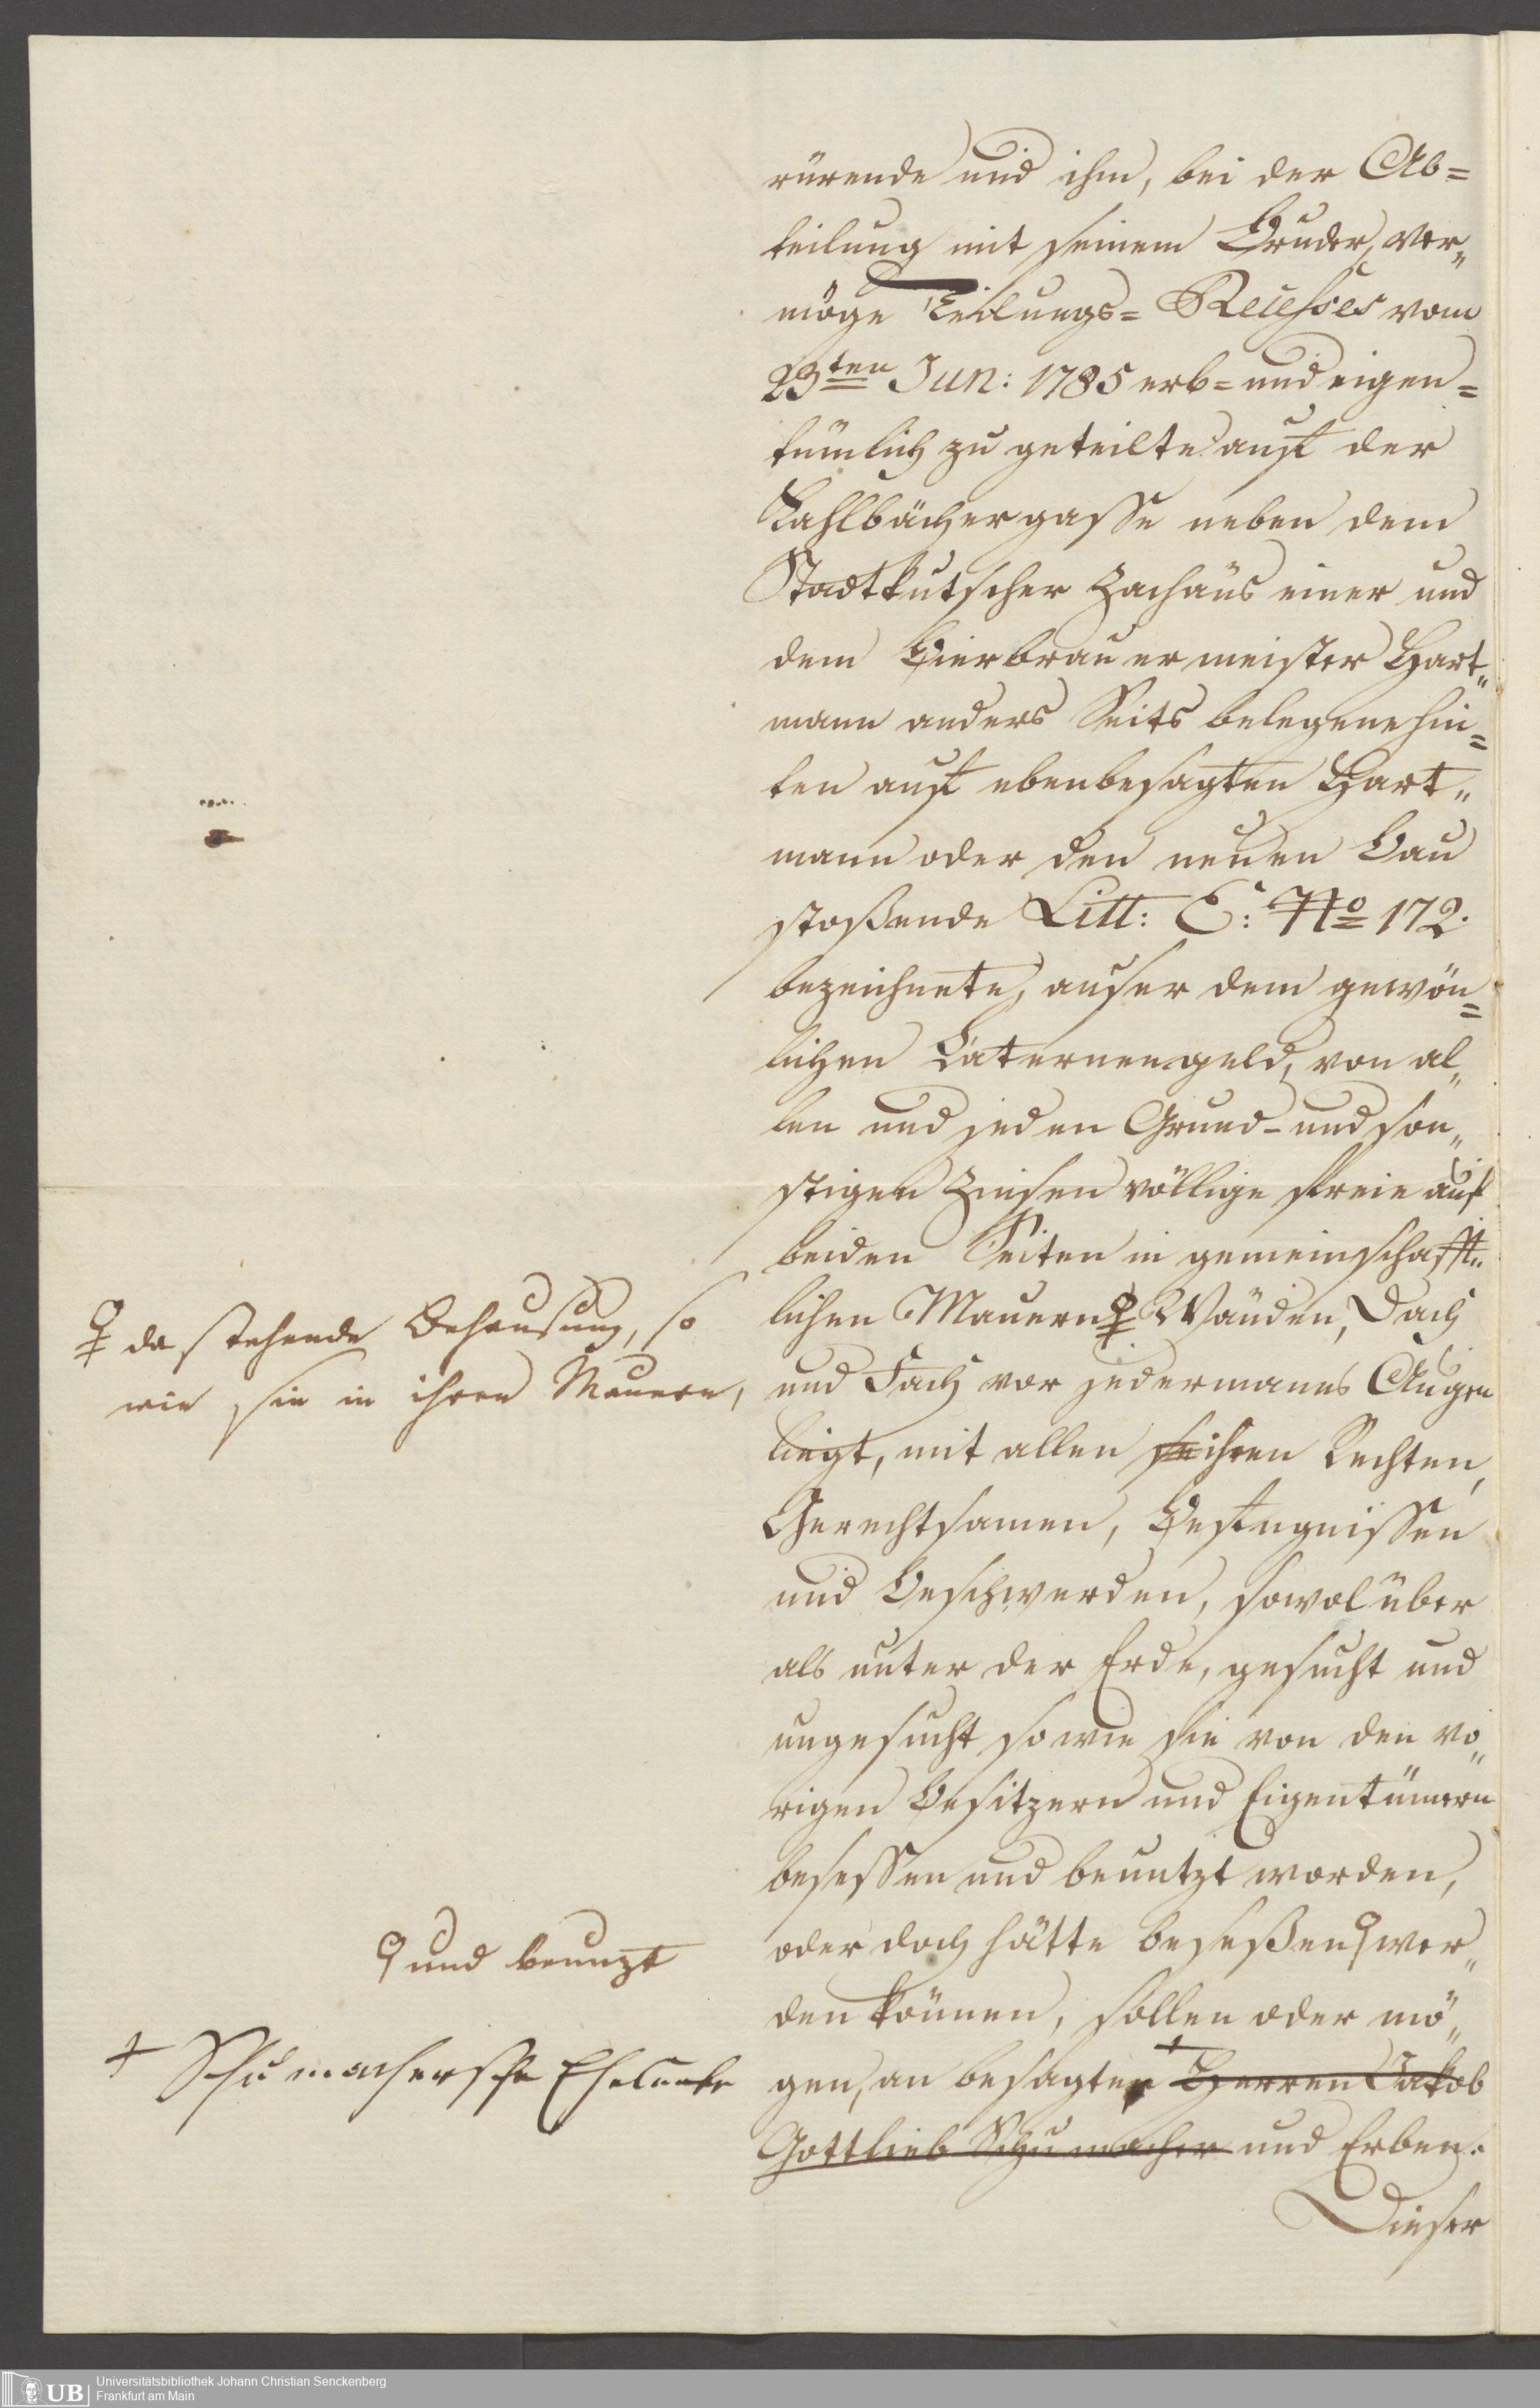 rürende und ihm, bei der Ab=
teilung mit seinem Bruder, ver„
möge Teilungs= Recesses vom
23ten Jun: 1785 erb= und eigen=
tümlich zu geteilte auf der
Kahlbächergasse neben dem
Stadtkutscher Zachäus einer und
dem Bierbrauermeister Hart„
mann anders Seits belegene hin=
ten auf ebenbesagten Hart„
mann oder den neuen Bau
stoßende Litt: E: No 172.
bezeichnete, auser dem gewön=
lichen Laternengeld, von al„
len und jeden Grund- und son„
stigen Zinsen völlige freie auf
beiden Seiten in gemeinschafft„
lichen Mauern Wänden, Dach
und Fach vor jedermanns Augen
liegt, mit allen ihren Rechten,
Gerechtsamen, Befugnissen
und Beschwerden, sowol über
als unter der Erde, gesucht und
ungesucht so wie sie von den vo„
rigen Besitzern und Eigentümern
besessen und benutzt worden,
oder doch hätte beseßen wer„
den können, sollen oder mö„
gen, an besagte Herren Jakob
Gottlieb Schumacher und Erben.
Dieser
da stehende Behausung, so
wie sie in ihren Mauern,
und benuzt
+ Schumachersche Eheleute
Universitätsbibliothek Johann Christian Senckenberg
Frankfurt am Main
UB